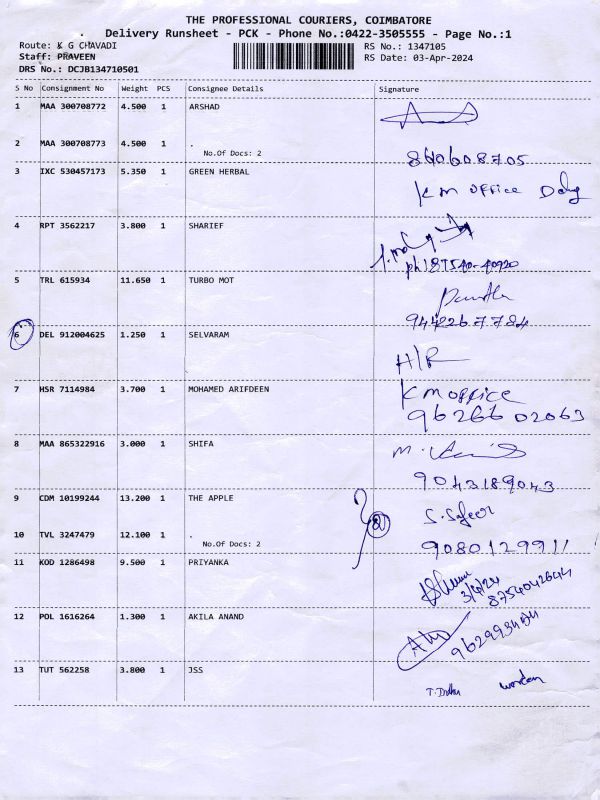 THE PROFESSIONAL COURIERS, COIMBATORE
Delivery Runsheet - PCK - Phone No.:0422-3505555 - Page No.:1
Route: K G CHAVADI
RS No.: 1347105
Staff: PRAVEEN
RS Date: 03-Apr-2024
DRS No.: DCJB134710501
S No Consignment No Weight PCS Consignee Details Signature
1 MAA 300708772 4.500 1 ARSHAD
2 MAA 300708773 4.500 1 .
No.Of Docs: 2
8610608705
3 IXC 530457173 5.350 1 GREEN HERBAL
KM office
4 RPT 3562217 3.800 1 SHARIEF
5 TRL 615934 11.650 1 TURBO MOT
9442267784
6 DEL 912004625 1.250 1 SELVARAM
H/R
7 HSR 7114984 3.700 1 MOHAMED ARIFDEEN
KM office
96266 02063
8 MAA 865322916 3.000 1 SHIFA
9043189043
9 CDM 10199244 13.200 1 THE APPLE
S. Safeer
10 TVL 3247479 12.100 1 .
No.Of Docs: 2
2
9080129911
11 KOD 1286498 9.500 1 PRIYANKA
3/4/24
8754042644
12 POL 1616264 1.300 1 AKILA ANAND
13 TUT 562258 3.800 1 JSS